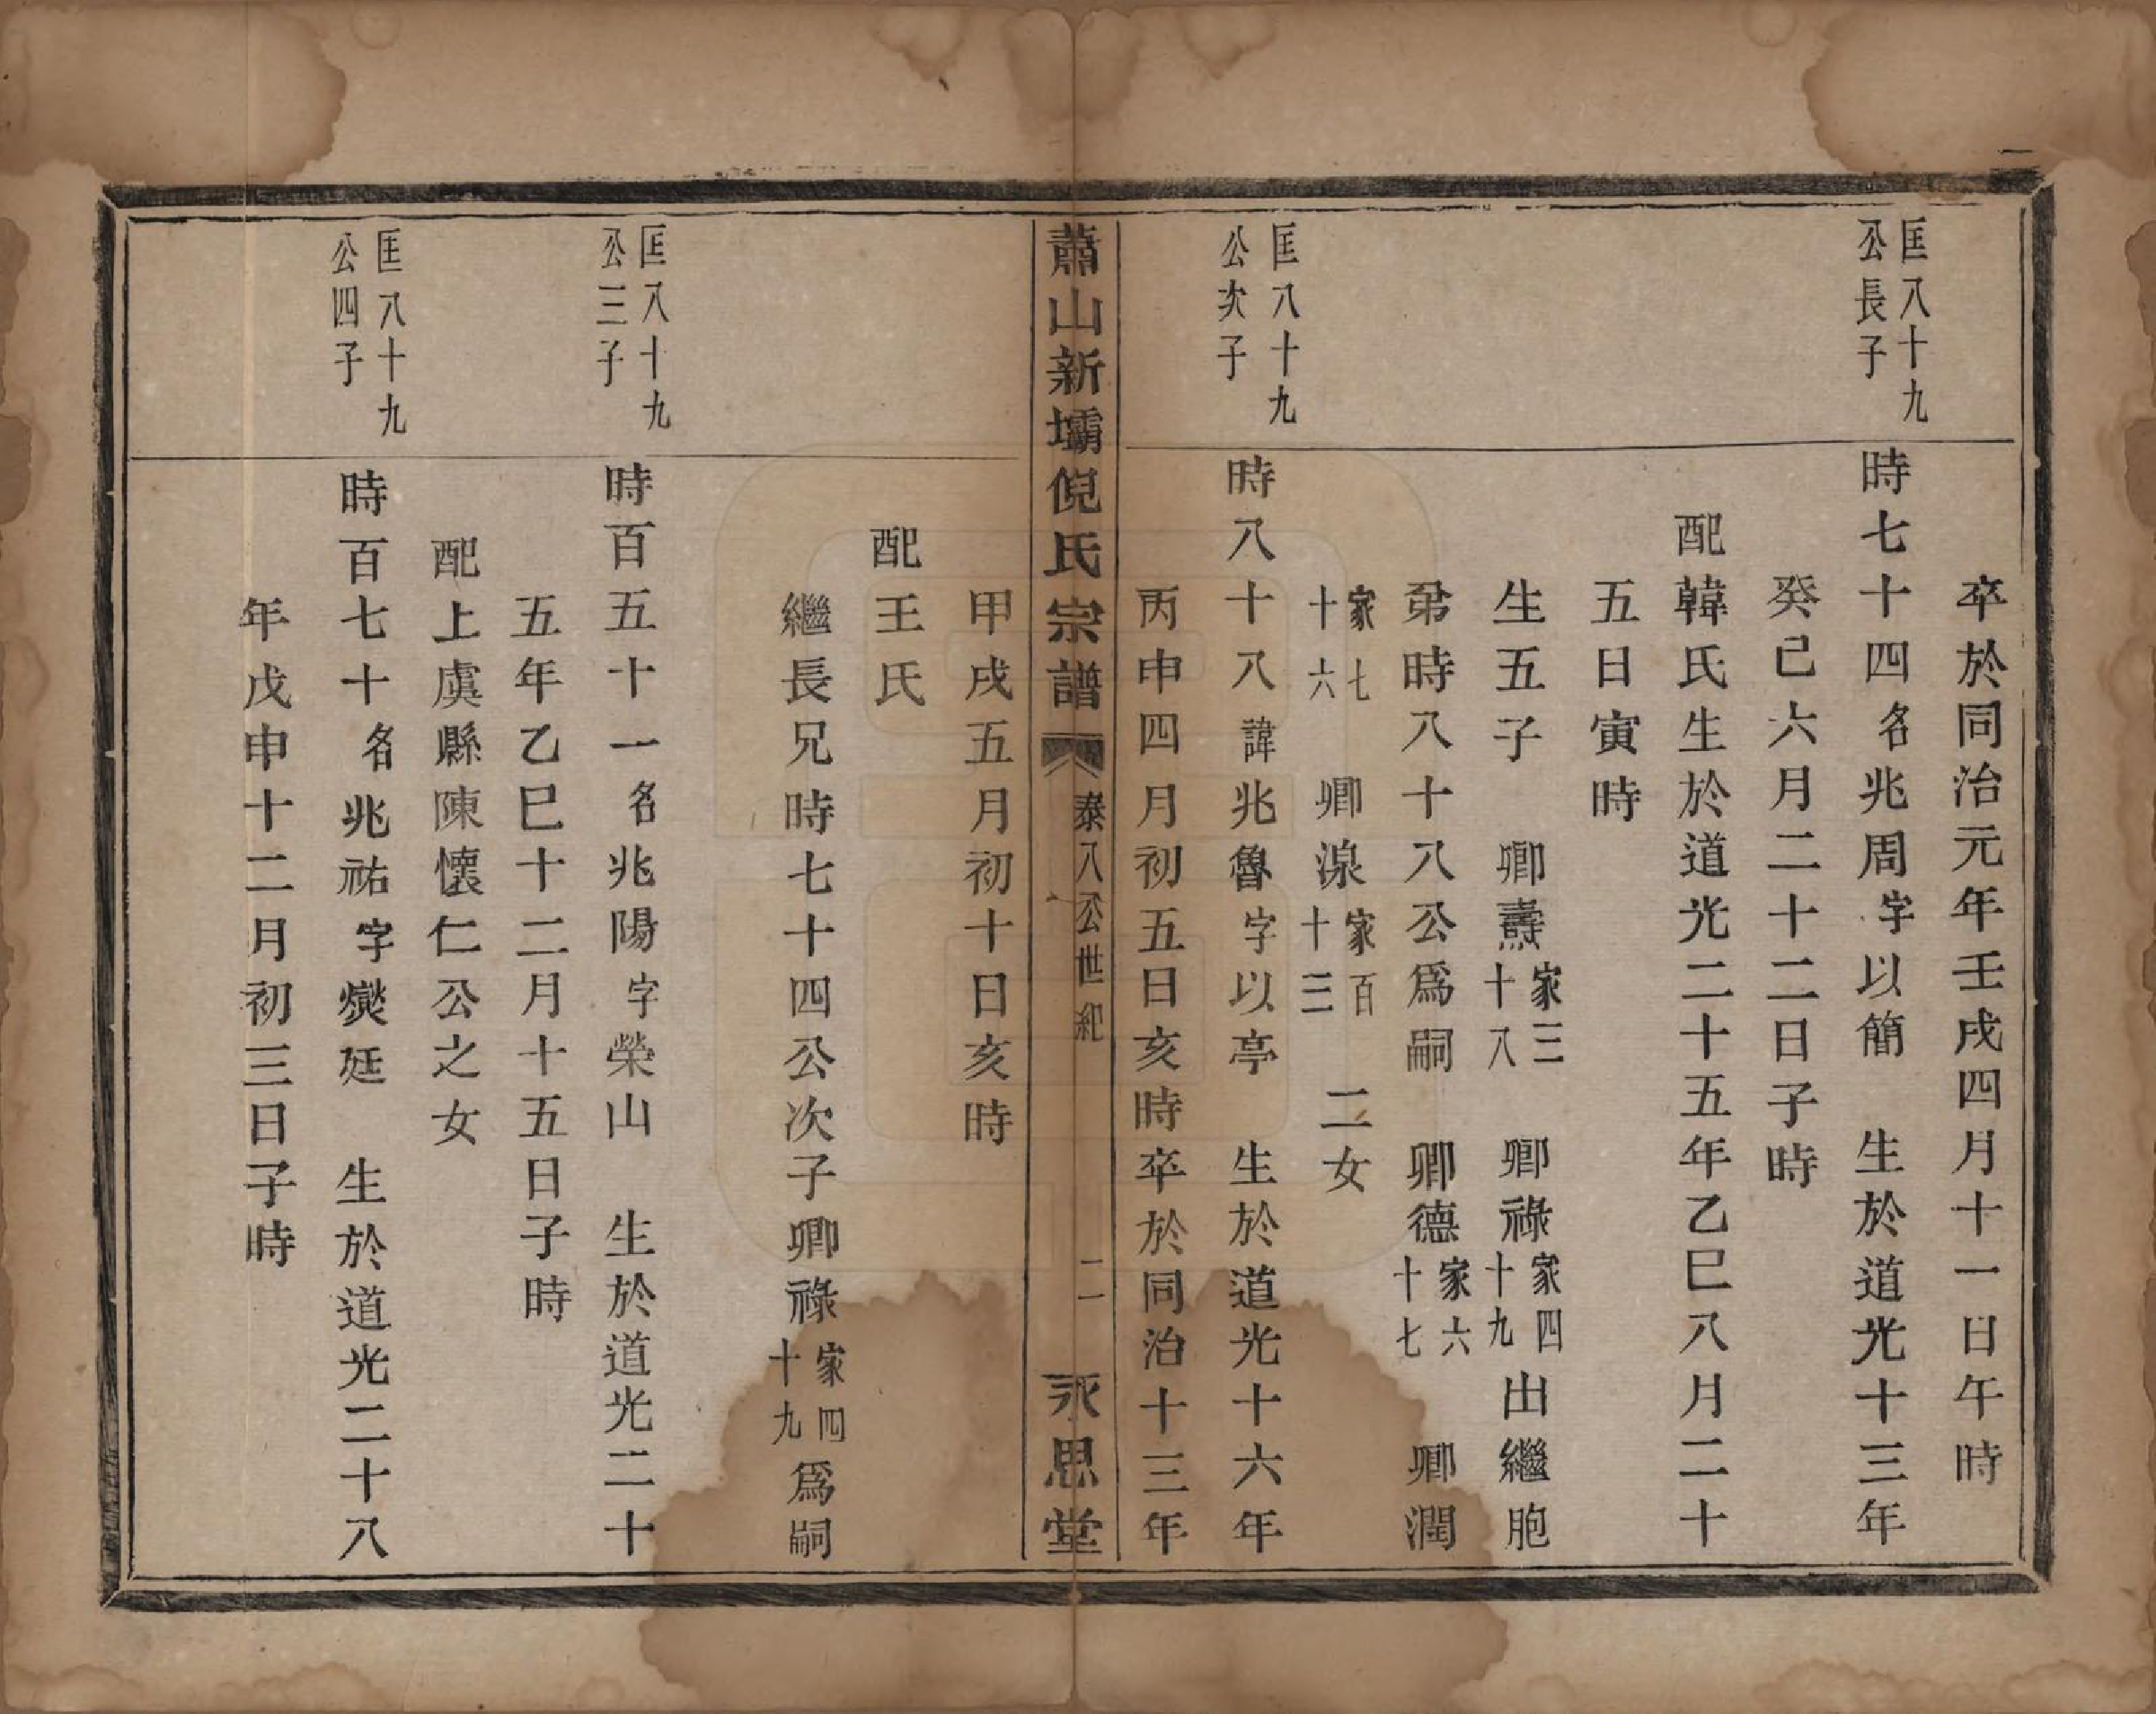 卒於同治元年壬戌四月十一日午時
匡八十九
公長子
時七十四名兆周字以簡　生於道光十三年
癸巳六月二十二日子時
配韓氏生於道光二十五年乙巳八月二十
五日寅時
生五子　卿燾家三十八　卿祿家四十九出繼胞
弟時八十八公爲嗣　卿德家六十七　卿潤
家七十六　卿湶家百十三　二女
匡八十九
公次子
時八十八諱兆魯字以亭　生於道光十六年
丙申四月初五日亥時卒於同治十三年
蕭山新壩倪氏宗譜　泰八公世紀　二　永思堂
甲戌五月初十日亥時
配王氏
繼長兄時七十四公次子卿祿家四十九爲嗣
匡八十九
公三子
時百五十一名兆陽字榮山　生於道光二十
五年乙巳十二月十五日子時
配上虞縣陳懷仁公之女
匡八十九
公四子
時百七十名兆祐字爕廷　生於道光二十八
年戊申十二月初三日子時